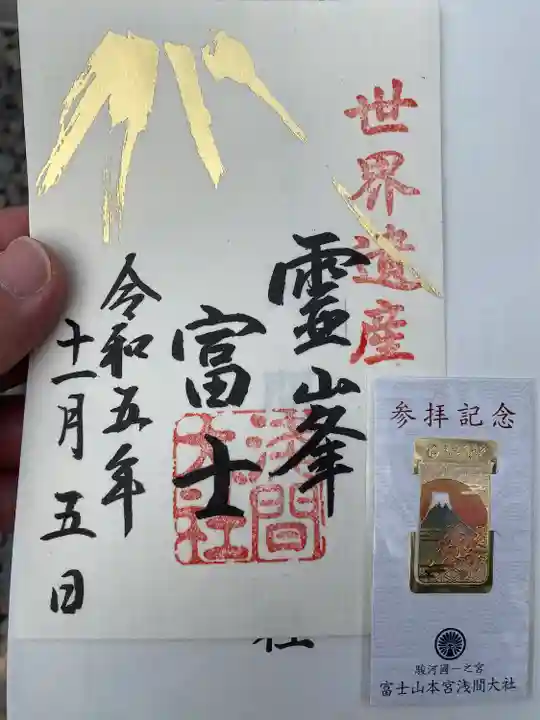 世界遺産
靈峯
富士
浅間
大社
令和五年
十一月五日
参拝記念
駿河國一之宮
富士山本宮浅間大社
社